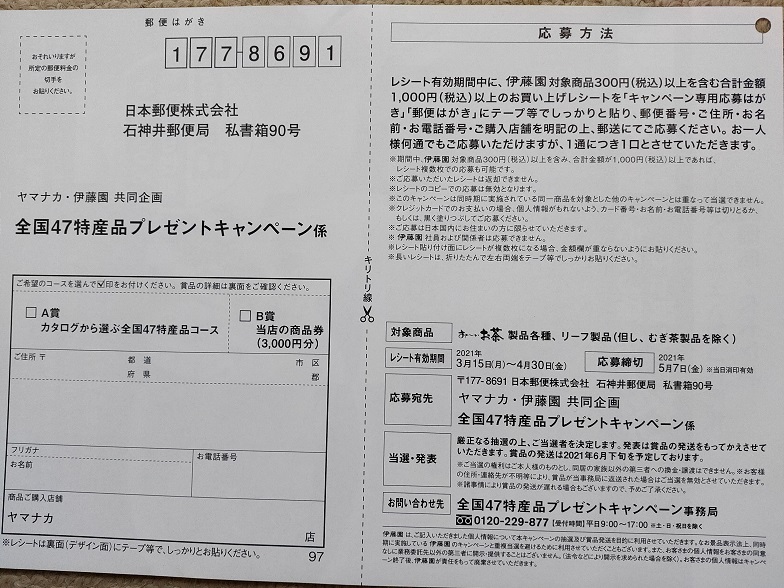 郵便はがき
おそれいりますが
所定の郵便料金の
切手を
お貼りください。
177-8691
日本郵便株式会社
石神井郵便局 私書箱90号
ヤマナカ・伊藤園 共同企画
全国47特産品プレゼントキャンペーン係
ご希望のコースを選んで☑印をお付けください。賞品の詳細は裏面をご確認ください。
□ A賞
カタログから選ぶ全国47特産品コース
□ B賞
当店の商品券
(3,000円分)
ご住所 〒
都 道
府 県
市 区
郡
フリガナ
お名前
お電話番号
商品ご購入店舗
ヤマナカ
店
※レシートは裏面(デザイン面)にテープ等で、しっかりとお貼りください。
97
キリトリ線
応募方法
レシート有効期間中に、伊藤園 対象商品300円(税込)以上を含む合計金額
1,000円(税込)以上のお買い上げレシートを「キャンペーン専用応募は
がき」「郵便はがき」にテープ等でしっかりと貼り、郵便番号・ご住所・お名
前・お電話番号・ご購入店舗を明記の上、郵送にてご応募ください。お一人
様何通でもご応募いただけますが、1通につき1口とさせていただきます。
※期間中、伊藤園 対象商品300円(税込)以上を含み、合計金額が1,000円(税込)以上であれば、
レシート複数枚での応募も可能です。
※ご応募いただいたレシートは返却できません。
※レシートのコピーでの応募は無効となります。
※このキャンペーンは同時期に実施されている同一商品を対象とした他のキャンペーンとは重なって当選できません。
※クレジットカードでのお支払いの場合、個人情報がもれないよう、カード番号・お名前・お電話番号等は切りとるか、
もしくは、黒く塗りつぶしてご応募ください。
※ご応募は日本国内にお住まいの方に限らせていただきます。
※ 伊藤園 社員および関係者は応募できません。
※レシート貼り付け面にレシートが複数枚になる場合、金額欄が重ならないようにお貼りください。
※長いレシートは、折りたたんで左右両端をテープ等でしっかりお貼りください。
対象商品
お〜いお茶 製品各種、リーフ製品(但し、むぎ茶製品を除く)
レシート有効期間
2021年
3月15日(月)〜4月30日(金)
応募締切
2021年
5月7日(金) ※当日消印有効
応募宛先
〒177-8691 日本郵便株式会社 石神井郵便局 私書箱90号
ヤマナカ・伊藤園 共同企画
全国47特産品プレゼントキャンペーン係
当選・発表
厳正なる抽選の上、ご当選者を決定します。発表は賞品の発送をもってかえさせて
いただきます。賞品の発送は2021年6月下旬を予定しております。
※ご当選の権利はご本人様のものとし、同居の家族以外の第三者への換金・譲渡はできません。※お客様
の住所・連絡先が不明等により、賞品が当事務局に返送された場合はご当選を無効とさせていただきます。
※諸事情により賞品の発送が遅れる場合もございますので、予めご了承ください。
お問い合わせ先
全国47特産品プレゼントキャンペーン事務局
0120-229-877 [受付時間]平日9:00〜17:00 ※土・日・祝日を除く
伊藤園 は、ご記入いただきました個人情報について本キャンペーンの抽選及び賞品発送を目的に利用させていただきます。なお景品表示法上、同時
期に実施している 伊藤園 のキャンペーンと重複当選を避けるために利用させていただくこともございます。また、お客さまの個人情報をお客さまの同意
なしに業務委託先以外の第三者に開示・提供することはございません。(法令などにより開示を求められた場合を除く)。お客さまの個人情報はキャンペ
ーン終了後、伊藤園が責任をもって廃棄させていただきます。